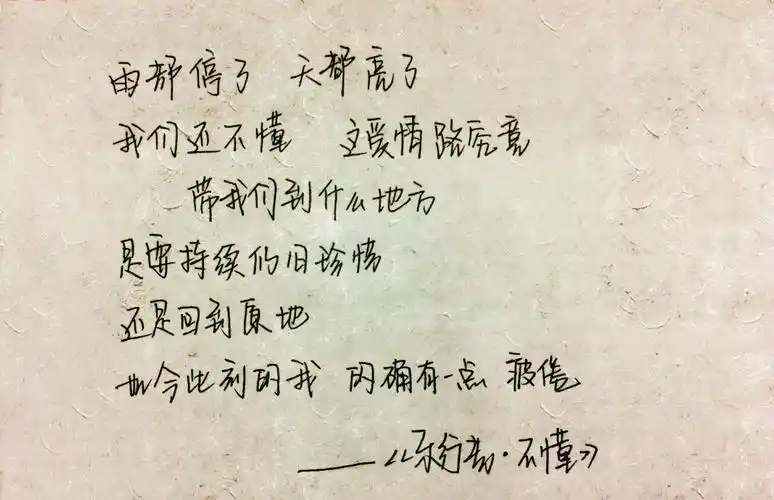 雨都停了 天都亮了
我们还不懂 这爱情路究竟
带我们到什么地方
是要持续仍旧珍惜
还是回到原地
如今此刻的我 的确有一点 疲倦
——《·不懂》